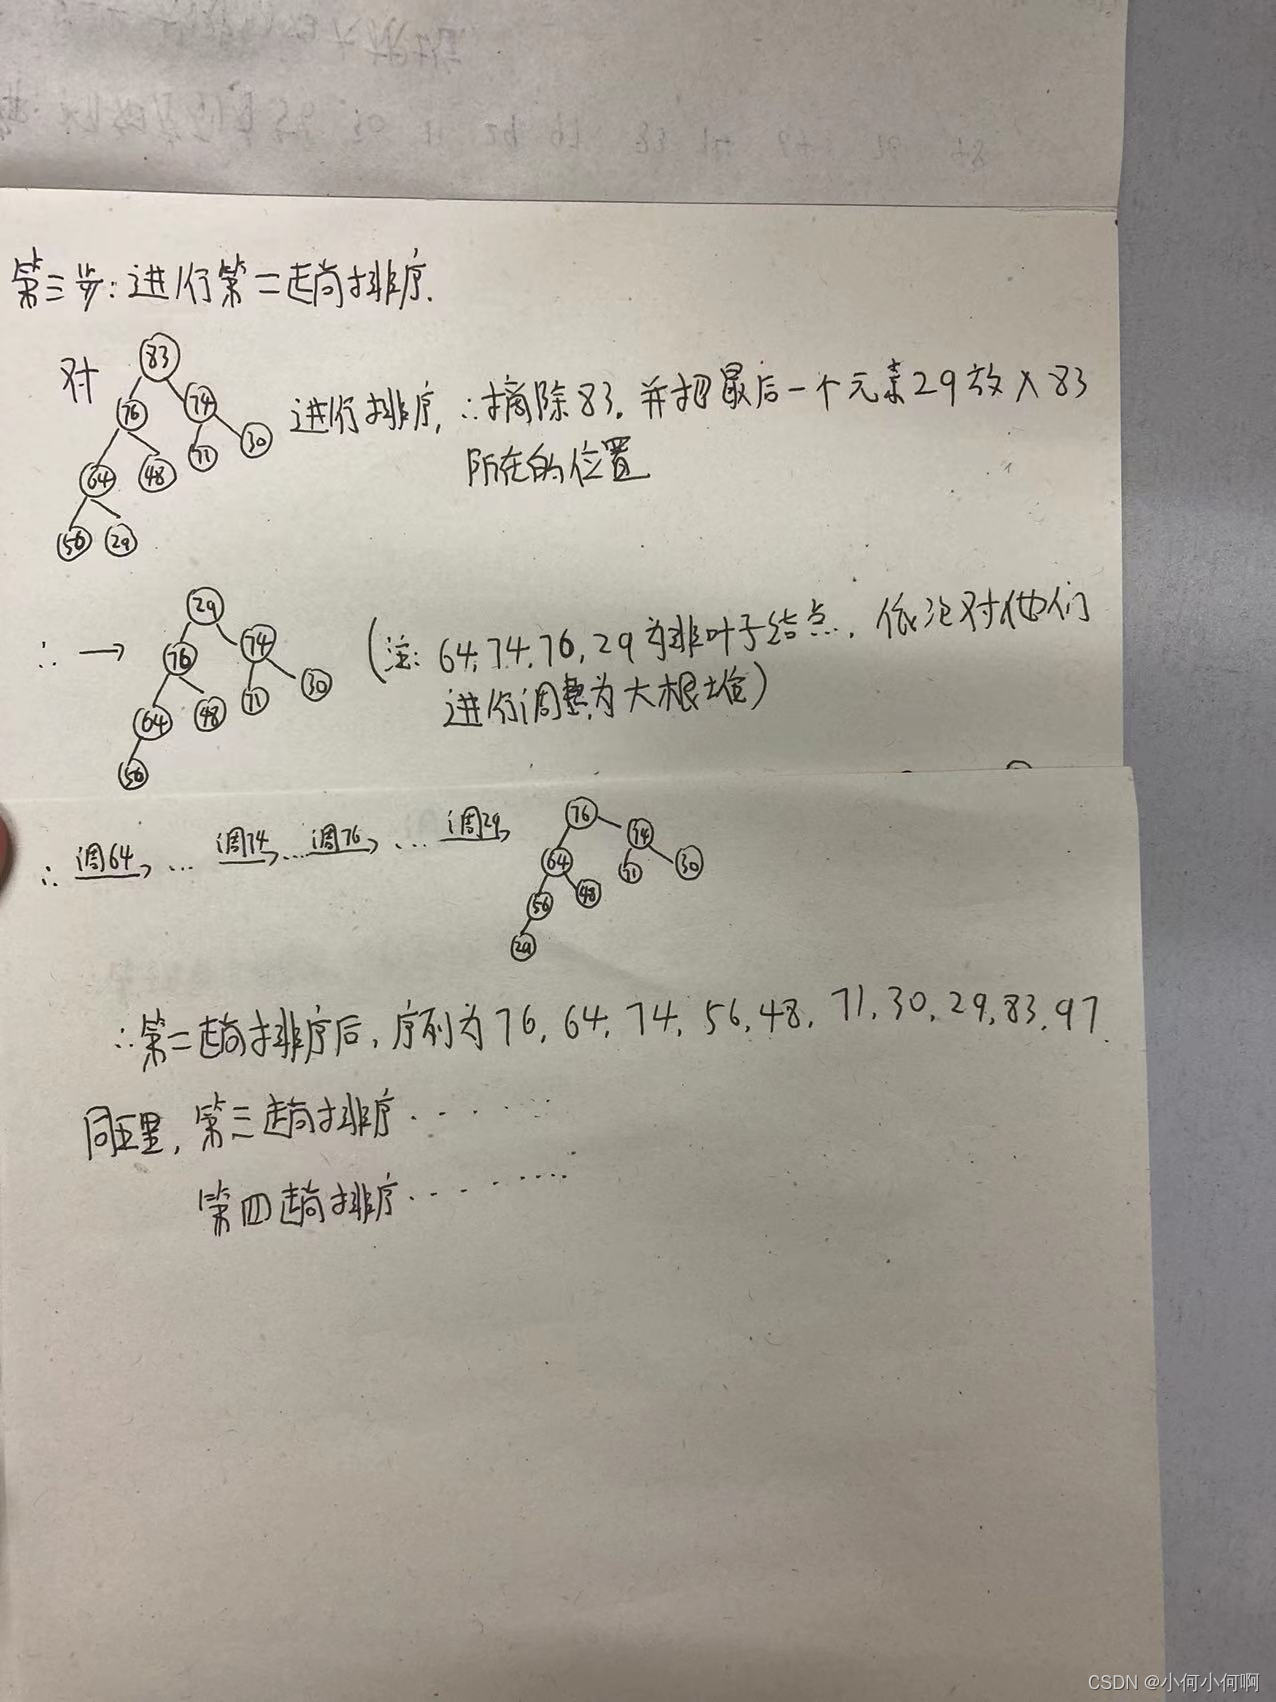 第三步:进行第二趟排序.
对
83
76 74
进行排序,∴摘除83,并把最后一个元素29放入83
64 48 71 30
所在的位置
56 29
29
∴ → 76 74
(注:64,74,76,29为非叶子结点,依次对他们
64 48 71 30
进行调整为大根堆)
56
∴ 调64 … 调74 … 调76 … 调29
76
64 74
56 48 71 30
29
∴第二趟排序后,序列为76,64,74,56,48,71,30,29,83,97
同理,第三趟排序……
第四趟排序………
CSDN @小何小何啊